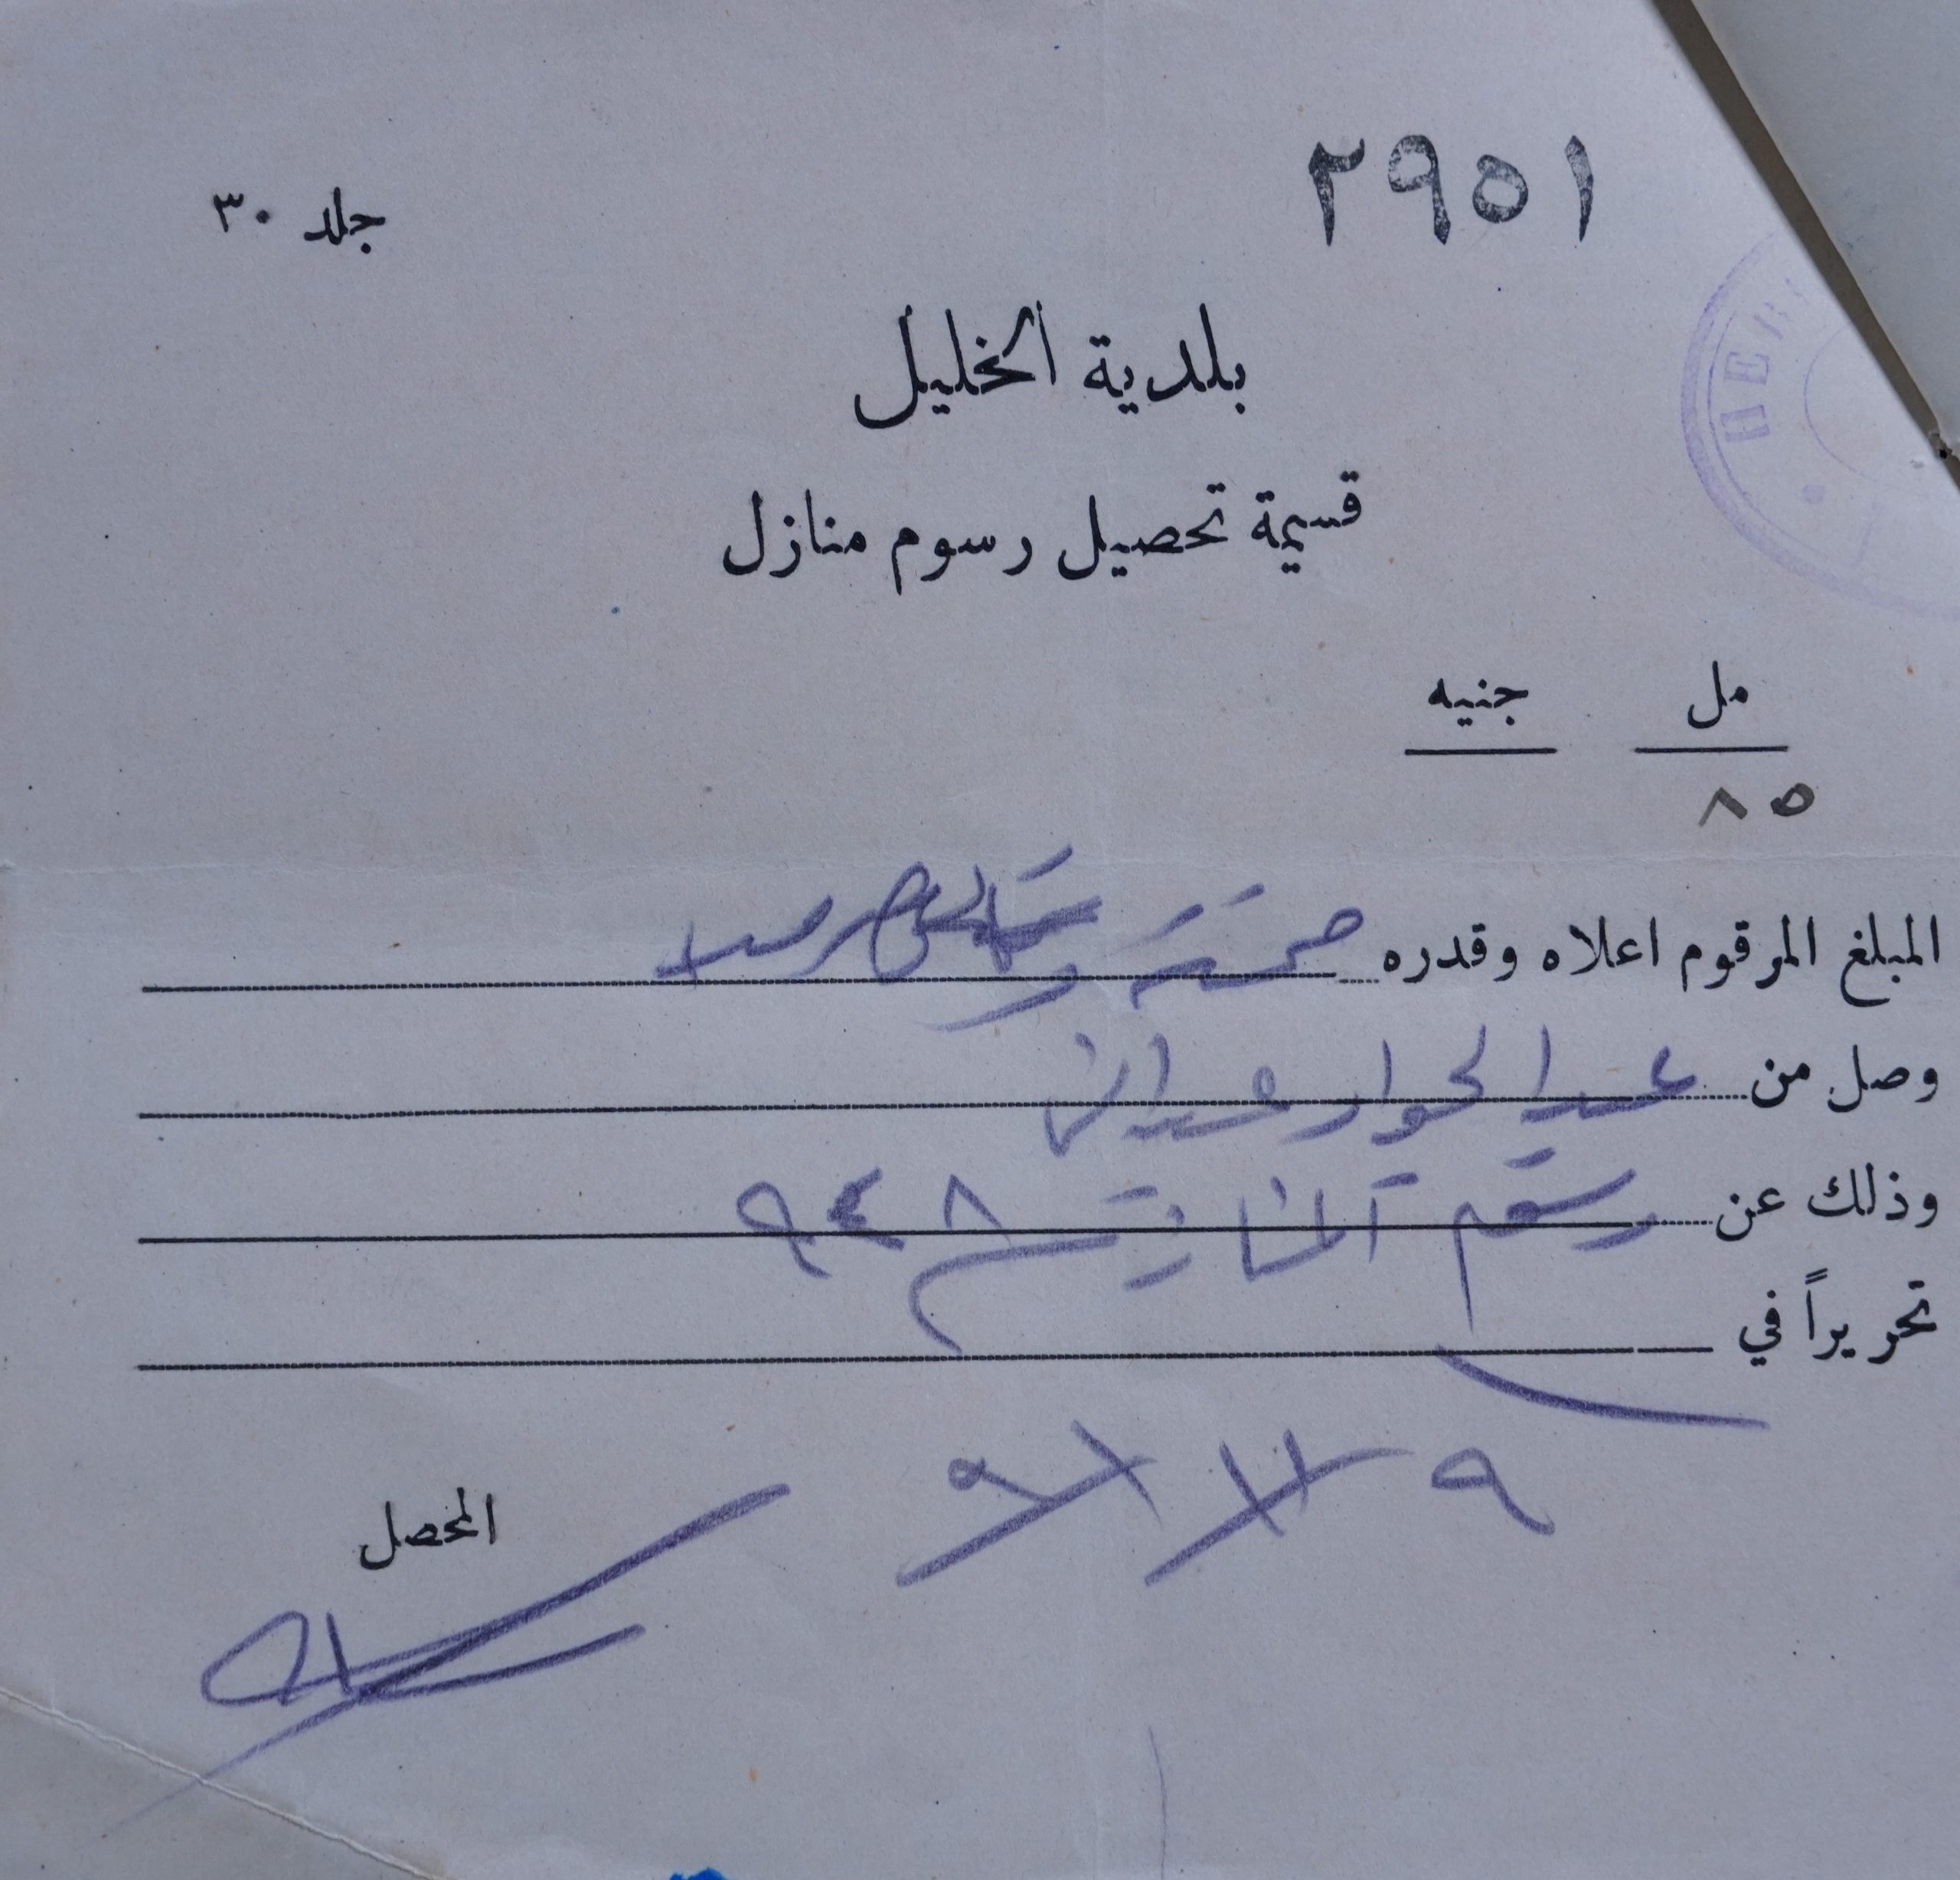 ٢٩٥١
جلد ٣٠
HEB
بلدية الخليل
قسيمة تحصيل رسوم منازل
مل جنيه
٨٥
المبلغ المرقوم اعلاه وقدره خمسة وثمانون مل
وصل من عبد الجواد عبدان
وذلك عن رسوم المنازل ٩٤٨
تحريراً في
٩/١١/٩
المحصل